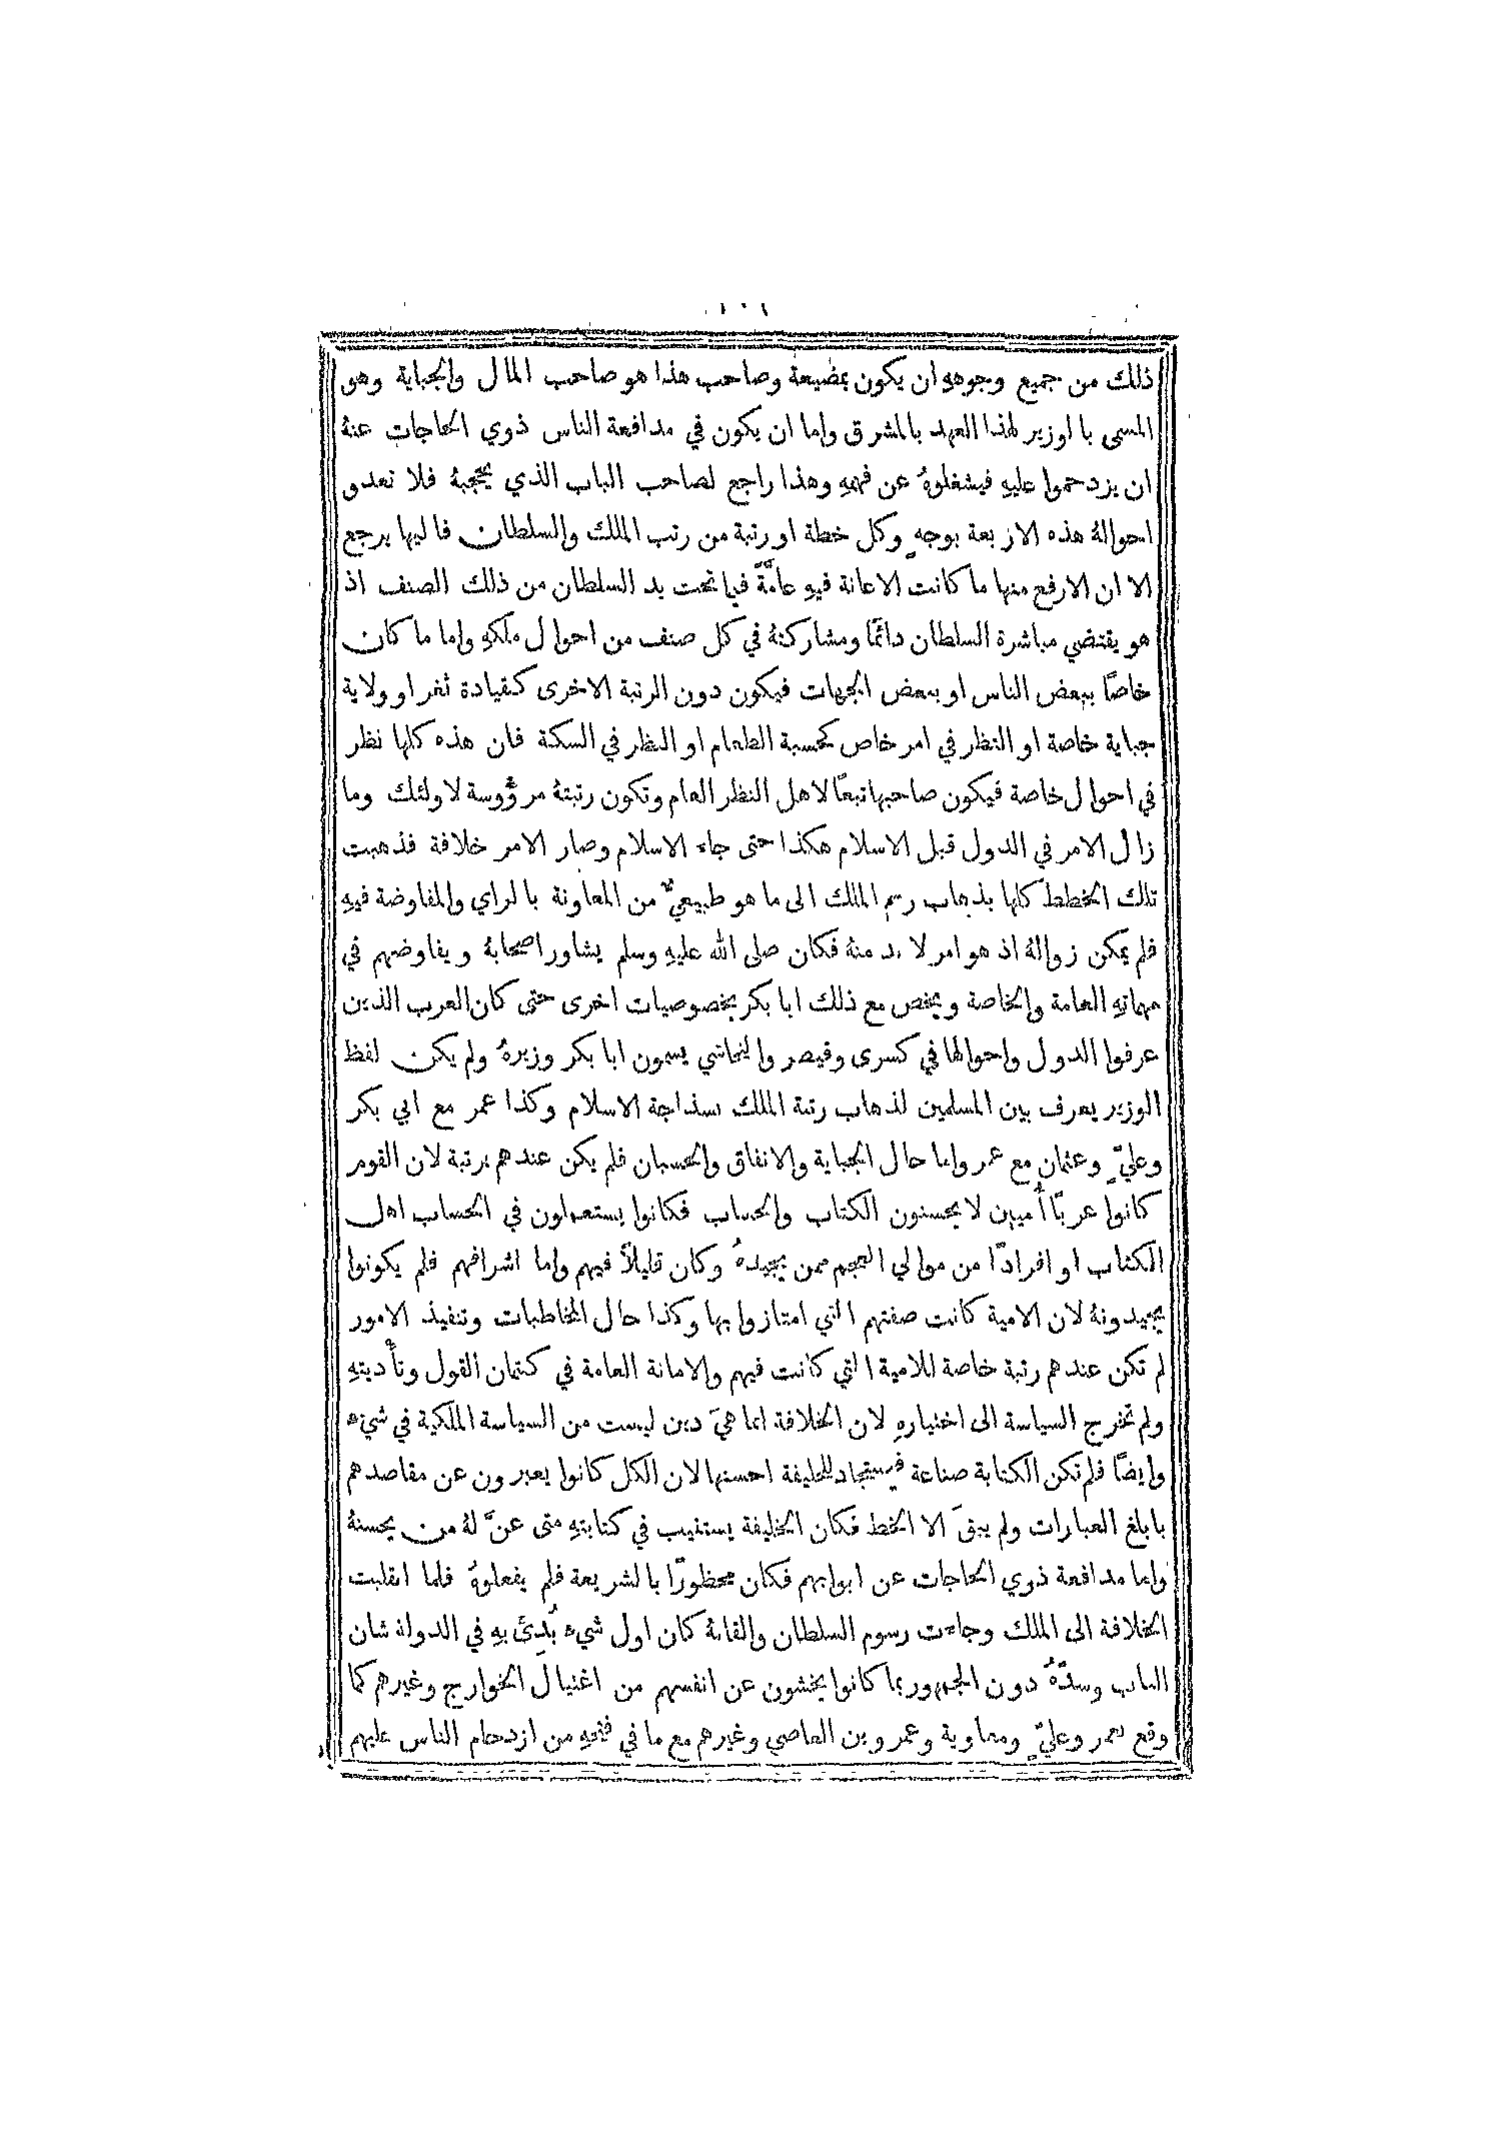 ذلك من جميع وجوههِ ان يكون بمضيعة وصاحب هذا هو صاحب المال والجباية وهو
المسمى بالوزير لهذا العهد بالمشرق واما ان يكون في مدافعة الناس ذوي الحاجات عنهُ
ان يزدحموا عليهِ فيشغلوهُ عن فهمهِ وهذا راجع لصاحب الباب الذي يحجبهُ فلا تعدو
احوالهُ هذه الاربعة بوجهٍ وكل خطة او رتبة من رتب الملك والسلطان فاليها يرجع
الا ان الارفع منها ما كانت الاعانة فيهِ عامَّة فيما تحت يد السلطان من ذلك الصنف اذ
هو يقتضي مباشرة السلطان دائمًا ومشاركتهُ في كل صنف من احوال ملكهِ واما ما كان
خاصًا ببعض الناس او ببعض الجهات فيكون دون الرتبة الاخرى كقيادة ثغر او ولاية
جباية خاصة او النظر في امر خاص كحسبة الطعام او النظر في السكة فان هذه كلها نظر
في احوال خاصة فيكون صاحبها تبعًا لاهل النظر العام وتكون رتبتهُ مرؤوسة لاولئك وما
زال الامر في الدول قبل الاسلام هكذا حتى جاء الاسلام وصار الامر خلافة فذهبت
تلك الخطط كلها بذهاب رسم الملك الى ما هو طبيعيٌّ من المعاونة بالراي والمفاوضة فيهِ
فلم يمكن زوالهُ اذ هو امر لا بد منهُ فكان صلى الله عليهِ وسلم يشاور اصحابهُ ويفاوضهم في
مهماتهِ العامة والخاصة ويخص مع ذلك ابا بكر بخصوصيات اخرى حتى كان العرب الذين
عرفوا الدول واحوالها في كسرى وقيصر والنجاشي يسمون ابا بكر وزيرهُ ولم يكن لفظ
الوزير يعرف بين المسلمين لذهاب رتبة الملك بسذاجة الاسلام وكذا عمر مع ابي بكر
وعليٍّ وعثمان مع عمر واما حال الجباية والانفاق والحسبان فلم يكن عندهم برتبة لان القوم
كانوا عربًا أُميين لا يحسنون الكتاب والحساب فكانوا يستعملون في الحساب اهل
الكتاب او افرادًا من موالي العجم ممن يجيدهُ وكان قليلاً فيهم واما اشرافهم فلم يكونوا
يجيدونهُ لان الامية كانت صفتهم التي امتازوا بها وكذا حال المخاطبات وتنفيذ الامور
لم تكن عندهم رتبة خاصة للامية التي كانت فيهم والامانة العامة في كتمان القول وتأديتهِ
ولم تخرج السياسة الى اختيارهِ لان الخلافة انما هيَ دين ليست من السياسة الملكية في شيء
وايضًا فلم تكن الكتابة صناعة فيستجاد للخليفة احسنها لان الكل كانوا يعبرون عن مقاصدهم
بابلغ العبارات ولم يبقَ الا الخط فكان الخليفة يستنيب في كتابتهِ متى عنَّ لهُ من يحسنهُ
واما مدافعة ذوي الحاجات عن ابوابهم فكان محظورًا بالشريعة فلم يفعلوهُ فلما انقلبت
الخلافة الى الملك وجاءت رسوم السلطان والقابهُ كان اول شيء بُدِئَ بهِ في الدولة شان
الباب وسدّهُ دون الجمهور بما كانوا يخشون عن انفسهم من اغتيال الخوارج وغيرهم كما
وقع بعمر وعليٍّ ومعاوية وعمرو بن العاصي وغيرهم مع ما في فتحهِ من ازدحام الناس عليهم